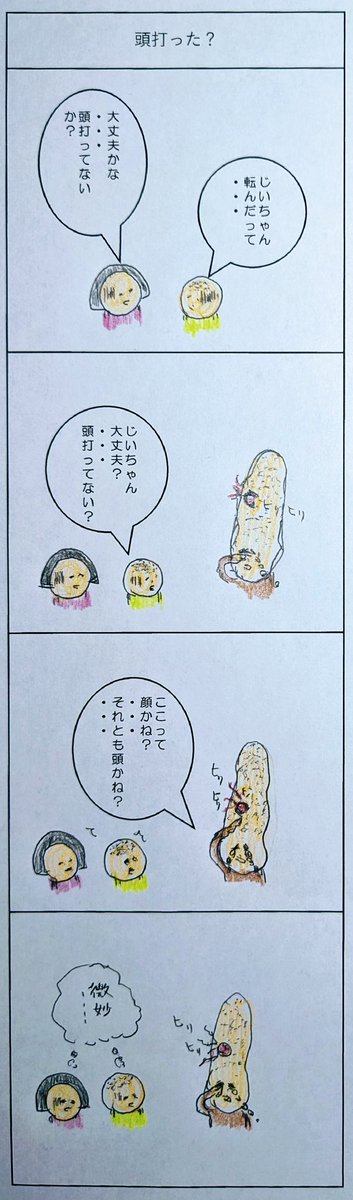 頭打った？
じいちゃん
転んだって
・・・
大丈夫かな
・・・
頭打ってない
か？
じいちゃん
大丈夫？
・・・
頭打ってない？
ヒリ
ヒリ
ここって
顔かね？
・・・
それとも頭かね？
・・・
ヒリ
ヒリ
微妙
‥‥
ヒリ
ヒリ